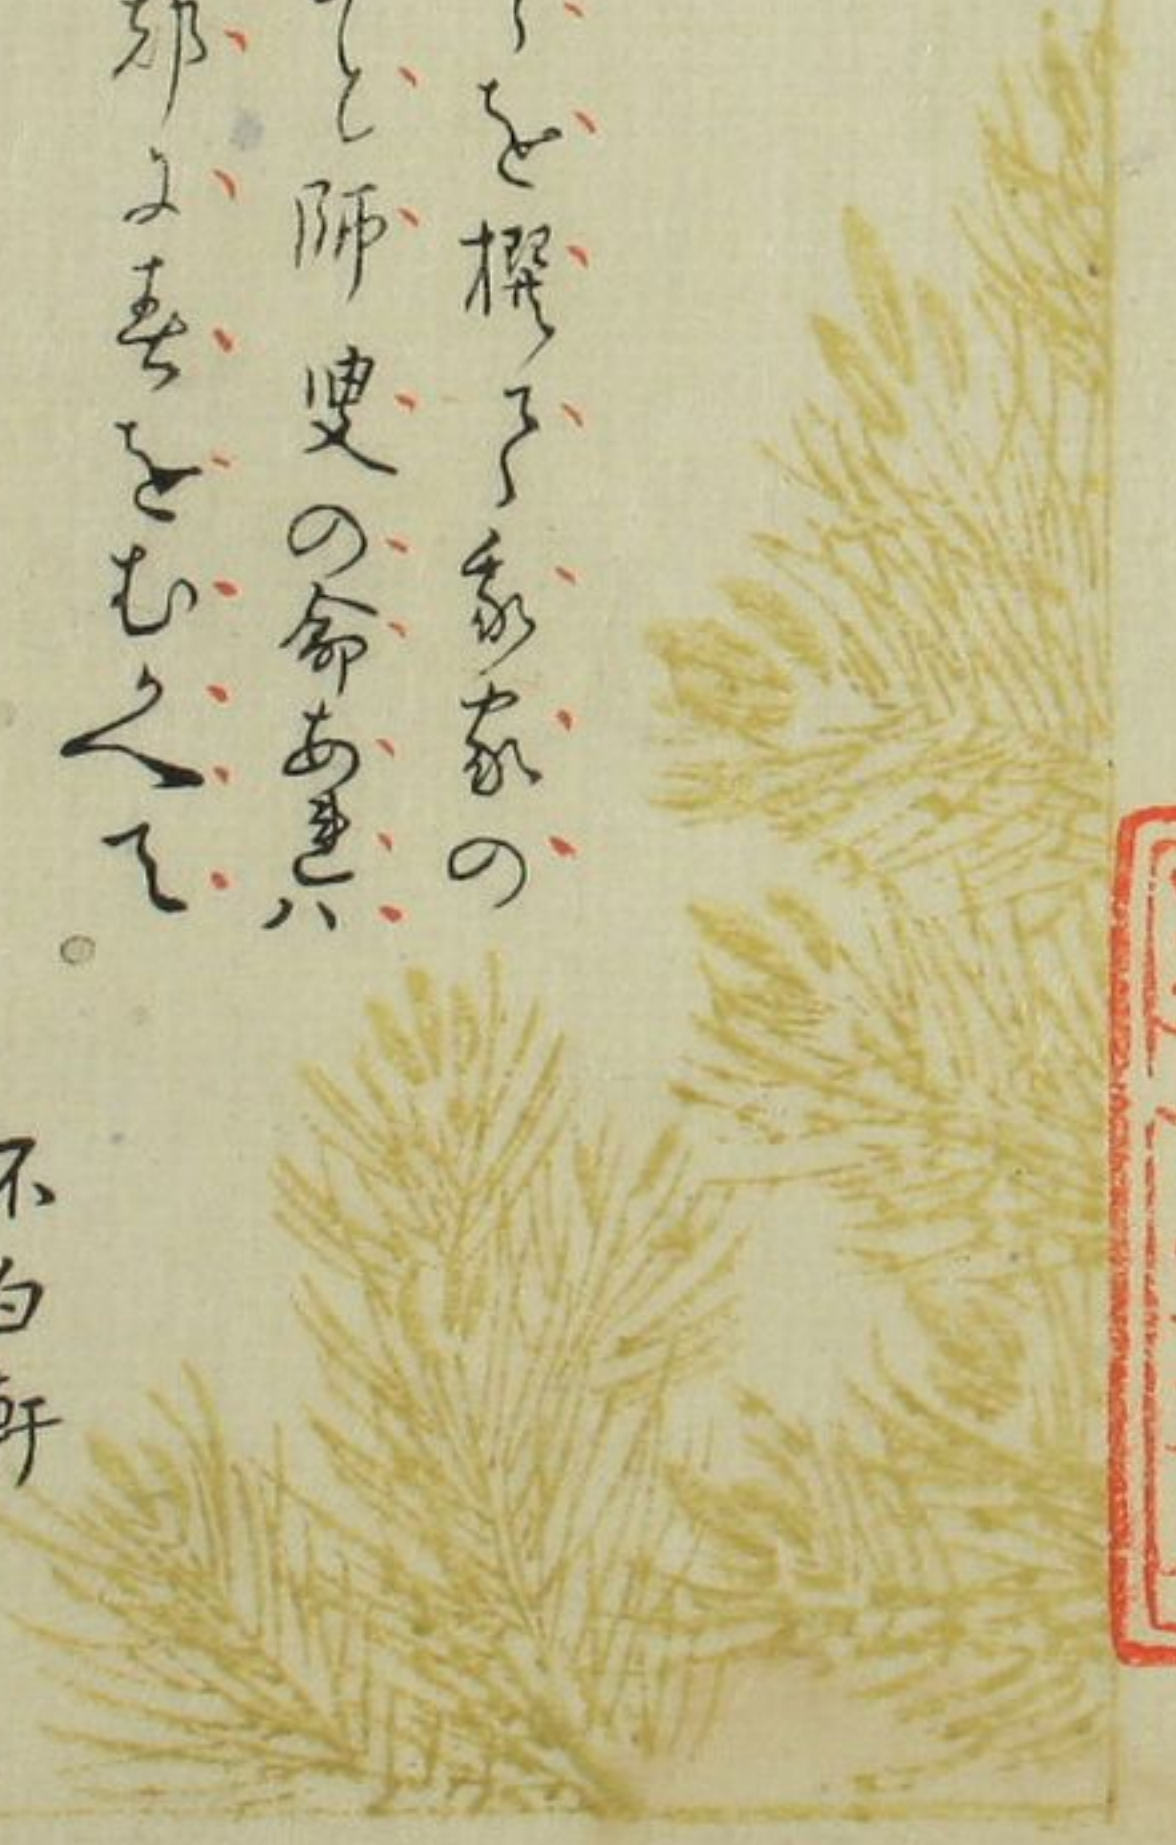 を撰て我家の
と師叟の命あれハ
都に春をむかへて
不白軒